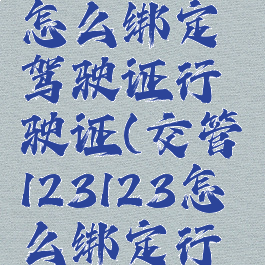 怎么绑定
驾驶证行
驶证(交管
123123怎
么绑定行